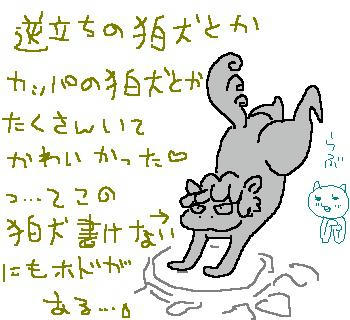 逆立ちの狛犬とか
カッパの狛犬とか
たくさんいて
かわいかった♡
っ…てこの
狛犬書けない→
にもホドが
ある…。
らぶ